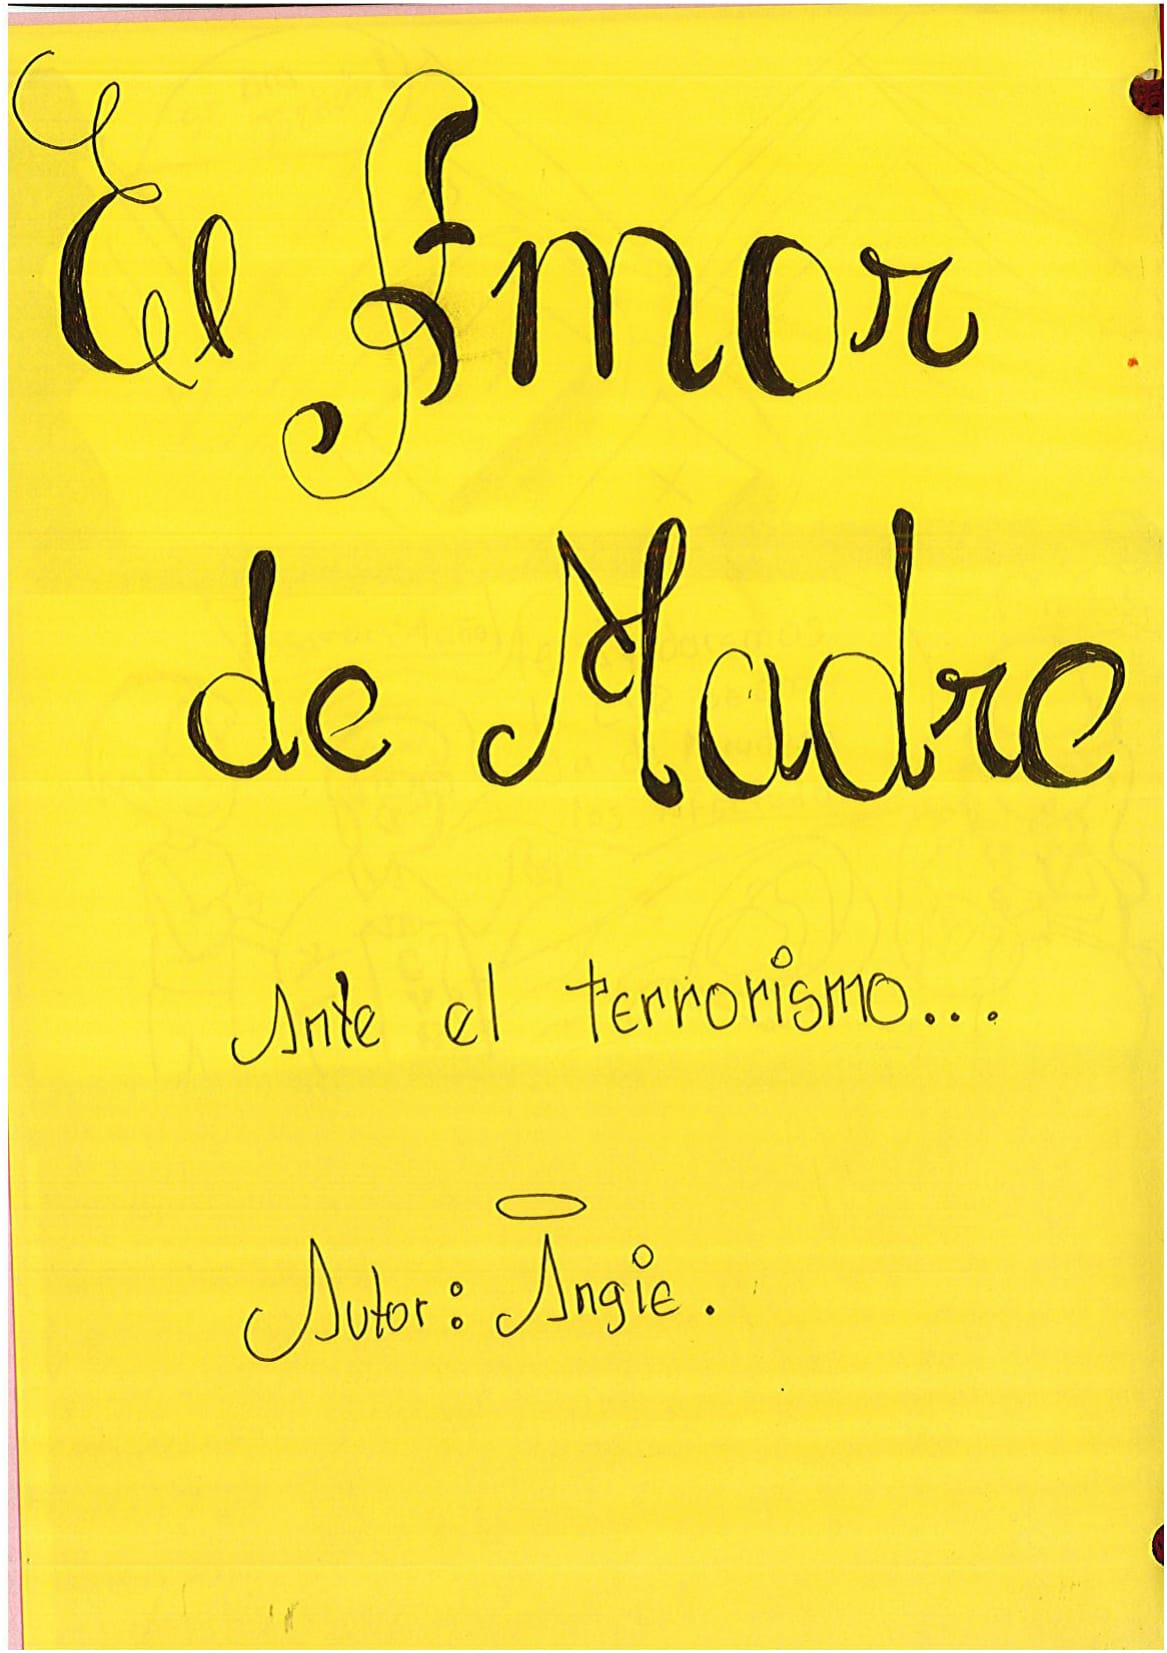 El Amor
de Madre
Ante el terrorismo...
Autor: Angie.